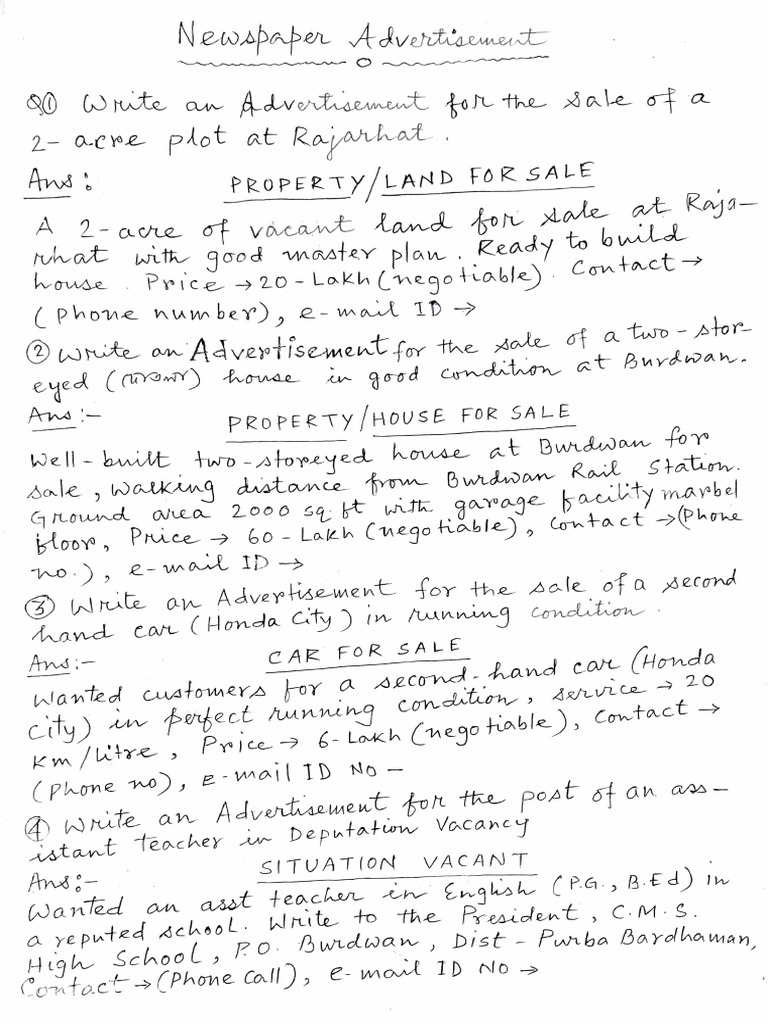 Newspaper Advertisement
Q① Write an Advertisement for the sale of a
2-acre plot at Rajarhat.
Ans: PROPERTY/LAND FOR SALE
A 2-acre of vacant land for sale at Raja-
rhat with good master plan. Ready to build
house. Price → 20-Lakh (negotiable). Contact →
(Phone number), e-mail ID →
② Write an Advertisement for the sale of a two-stor-
eyed () house in good condition at Burdwan.
Ans:- PROPERTY/HOUSE FOR SALE
Well-built two-storeyed house at Burdwan for
sale, walking distance from Burdwan Rail Station.
Ground area 2000 sq.ft with garage facility marbel
floor, Price → 60-Lakh (negotiable), Contact → (Phone
no.), e-mail ID →
③ Write an Advertisement for the sale of a second
hand car (Honda City) in running condition.
Ans:- CAR FOR SALE
Wanted customers for a second-hand car (Honda
City) in perfect running condition, service → 20
Km/Litre, Price → 6-Lakh (negotiable), Contact →
(Phone no), e-mail ID No –
④ Write an Advertisement for the post of an ass-
istant teacher in Deputation Vacancy
Ans:- SITUATION VACANT
Wanted an asst teacher in English (P.G., B.Ed) in
a reputed school. Write to the President, C.M.S.
High School, P.O. Burdwan, Dist - Purba Bardhaman,
Contact → (Phone Call), e-mail ID No →